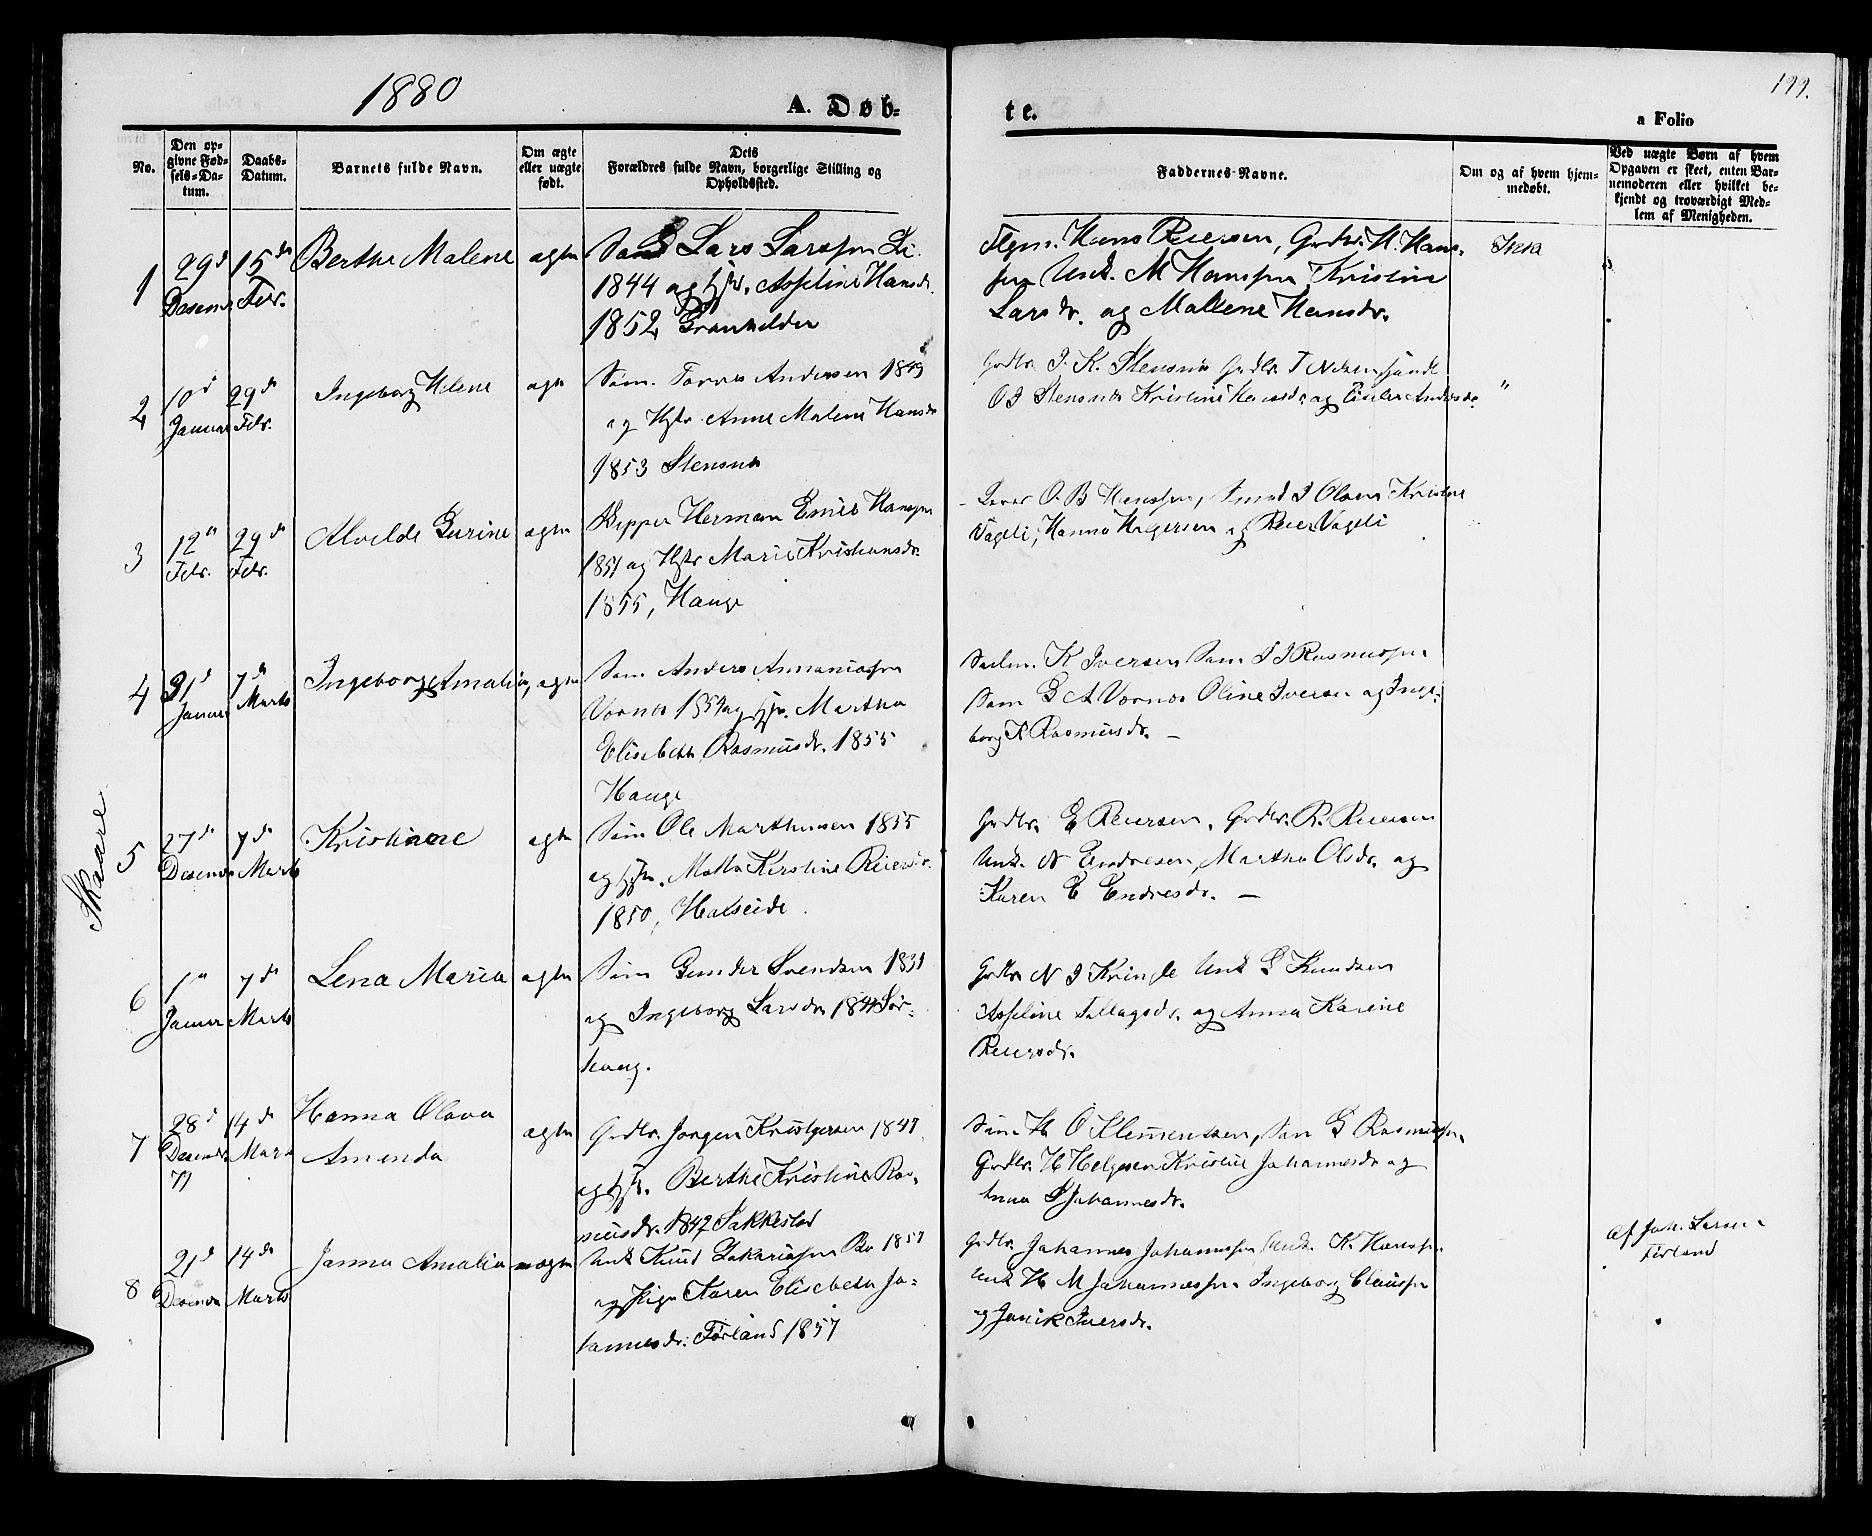 1880
A. Døb=
te.
199.
a Folio
No.
Den op-
givne Fød-
sels-Da-
tum.
Daabs-
Datum.
Barnets fulde Navn.
Om ægte
eller uægte
født.
Dets
Forældres fulde Navn, borgerlige Stilling og
Opholdssted.
Faddernes Navne.
Om og af hvem hjem-
medøbt.
Ved uægte Børn af hvem
Opgaven er skeet, enten Bar-
nemoderen eller hvilket be-
kjendt og troværdigt Med-
lem af Menigheden.
Skaare
1
29d
Desemb
15de
Febr.
Berthe Malene
ægte
Lars Larssen
1844 og Hstr. Asseline Hansdr.
1852
Hans Reiersen, Grdbr. H. Hans-
sen Unk. M Hanssen Kristine
Larsdr. og Mallene Hansdr.
Ikke
2
10d
Januar
29de
Febr.
Ingeborg Helene
ægte
Søm. Andersen 1849
og Hstr Anne Malene Hansdr
1853 Stensnes
Grdbr. I. K. Stensnes Grdbr. T
O I Stensnes Kristine Hansdr. og Andersdr.
"
3
12te
Febr.
29de
Febr.
Alvilde Gurine
ægte
Herman Hanssen
1851 og Hstr Marie Kristiansdr.
1855, Hauge
O. B Hanssen, Smed I Olsen Kristine
Vågeli, Hanna og Reier Vageli
4
31d
Januar
7de
Marts
Ingeborg Amalia,
ægte
Søm Anders Ananiassen
Vornes og Martha
Elisabeth Rasmusdr. 1855
Hauge
K Iversen Søm. I I Rasmussen
Søm G A Vornes Oline Iversen og Inge-
borg K Rasmusdr. —
5
27de
Desemb
7de
Marts
Kristiane
ægte
Søm Ole Marthinsen 1855
og Malla Kirstine Reiersdr.
1850, Halseide
Grdbr. E Reiersen, Grdbr. R. Reiersen
Unk. N Endresen, Martha Olsdr. og
Karen E Endresdr. —
6
1te
Januar
7de
Marts
Lena Maria
ægte
Søm Gunder Svendsen
og Ingeborg Larsdr. Sør-
haug.
Grdbr N I Kringle Unk S Knudsen
Asseline Tollagsdr. og Anna Karine
Reiersdr.
7
28d
Desemb
79
14de
Marts
Hanna Olava
Amanda
ægte
Grdbr. Jørgen 1847
og Berthe Kristine Ras-
musdr. 1847 Sakkestad
Søm H O Klemmetsen, Søm G Rasmussen
Grdbr. H Helgesen Kristine Johannesdr og
Anna S Johannesdr.
8
21d
Desemb
14de
Marts
Janna Amalia
uægte
Unk Knud Zakariassen Bø 1857
og Pige Karen Elisabeth Jo-
hannesdr. Førland 1857
Grdbr. Johannes Johannessen Unk. K. Hanssen
Unk H M Johannessen Ingeborg Claussen
og Iversdr.
af Joh. Larsen
Førland